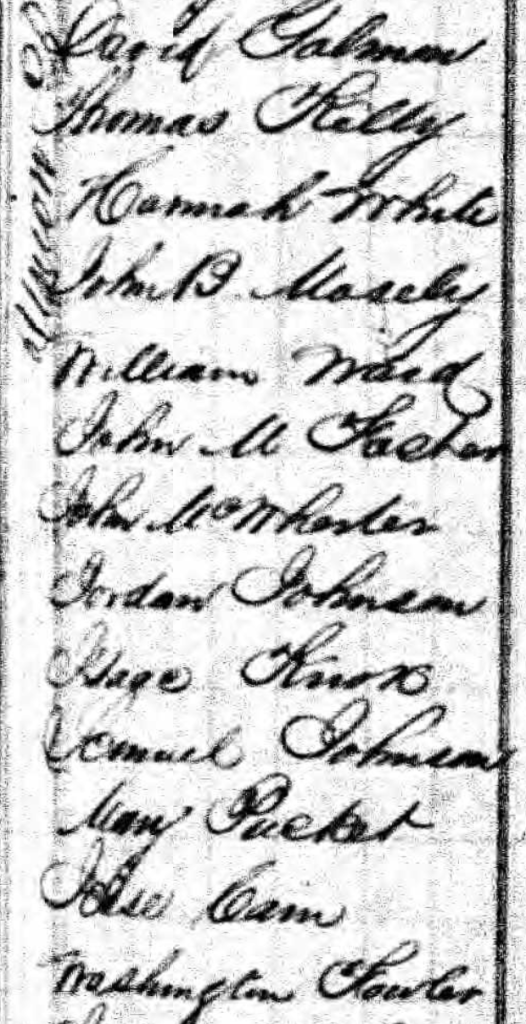 David Galman
Thomas Killy
Hannah White
John B. Mosely
William Ward
John M
John McWherter
Jordan Johnson
Isaac Knox
Samuel Johnson
Mary Pucket
Cain
Washington Fowler